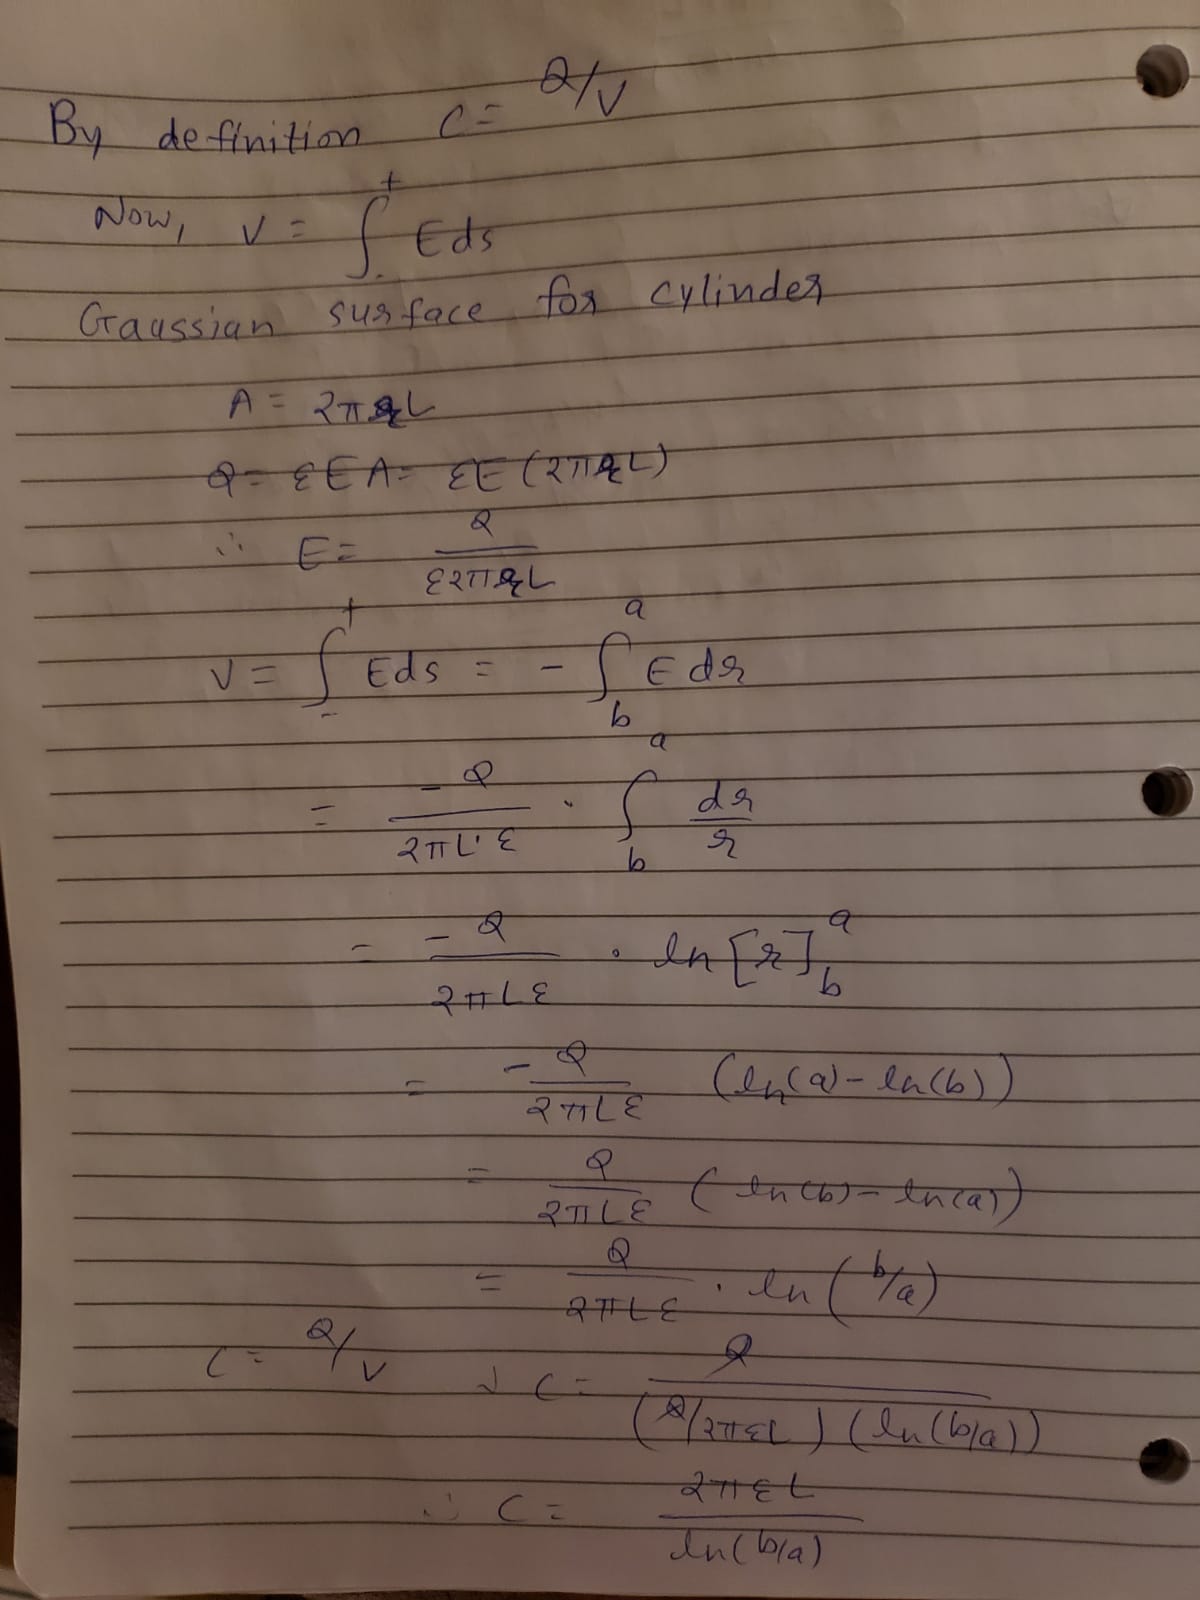 By definition C = Q/V
Now, V = ∫₋⁺ Eds
Gaussian surface for cylinder
A = 2πrL
Q = εEA = εE(2πrL)
∴ E = Q / ε2πrL
V = ∫₋⁺ Eds = - ∫_b^a E dr
= -Q / 2πL·ε · ∫_b^a dr/r
= -Q / 2πLε · ln[r]_b^a
= -Q / 2πLε (ln(a) - ln(b))
= Q / 2πLε (ln(b) - ln(a))
= Q / 2πLε · ln(b/a)
C = Q/V C = Q / (Q/2πεL)(ln(b/a))
∴ C = 2πεL / ln(b/a)